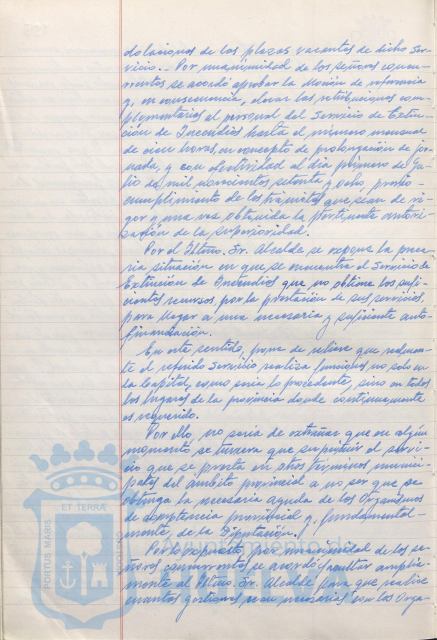 dotaciones de las plazas vacantes de dicho Ser-
vicio.- Por unanimidad de los señores concu-
rrentes se acordó aprobar la Moción de referencia
y, en consecuencia, elevar las retribuciones com-
plementarias al personal del Servicio de Extin-
ción de Incendios hasta el número mensual
de cien horas, en concepto de prolongación de jor-
nada, y con efectividad al día primero de Ju-
lio de mil novecientos setenta y ocho, previo
cumplimiento de los trámites que sean de ri-
gor y una vez obtenida la pertinente autori-
zación de la superioridad.
Por el Iltmo. Sr. Alcalde se expone la preca-
ria situación en que se encuentra el Servicio de
Extinción de Incendios que no obtiene los sufi-
cientes recursos, por la prestación de sus servicios,
para llegar a una necesaria y suficiente auto-
financiación.
En este sentido, pone de relieve que realmen-
te el referido Servicio realiza funciones no solo en
la Capital, como sería lo procedente, sino en todos
los lugares de la provincia donde continuamente
es requerido.
Por ello, no sería de extrañar que en algún
momento se tuviera que suspender el servi-
cio que se presta en otros términos munici-
pales del ámbito provincial a no ser que se
obtenga la necesaria ayuda de los Organismos
de competencia provincial y, fundamental-
mente, de la Diputación.
Por lo expuesto, por unanimidad de los se-
ñores concurrentes se acordó facultar amplia-
mente al Iltmo. Sr. Alcalde para que realice
cuantas gestiones sean necesarias con los Orga-
PORTUS MARIS
ET TERRA